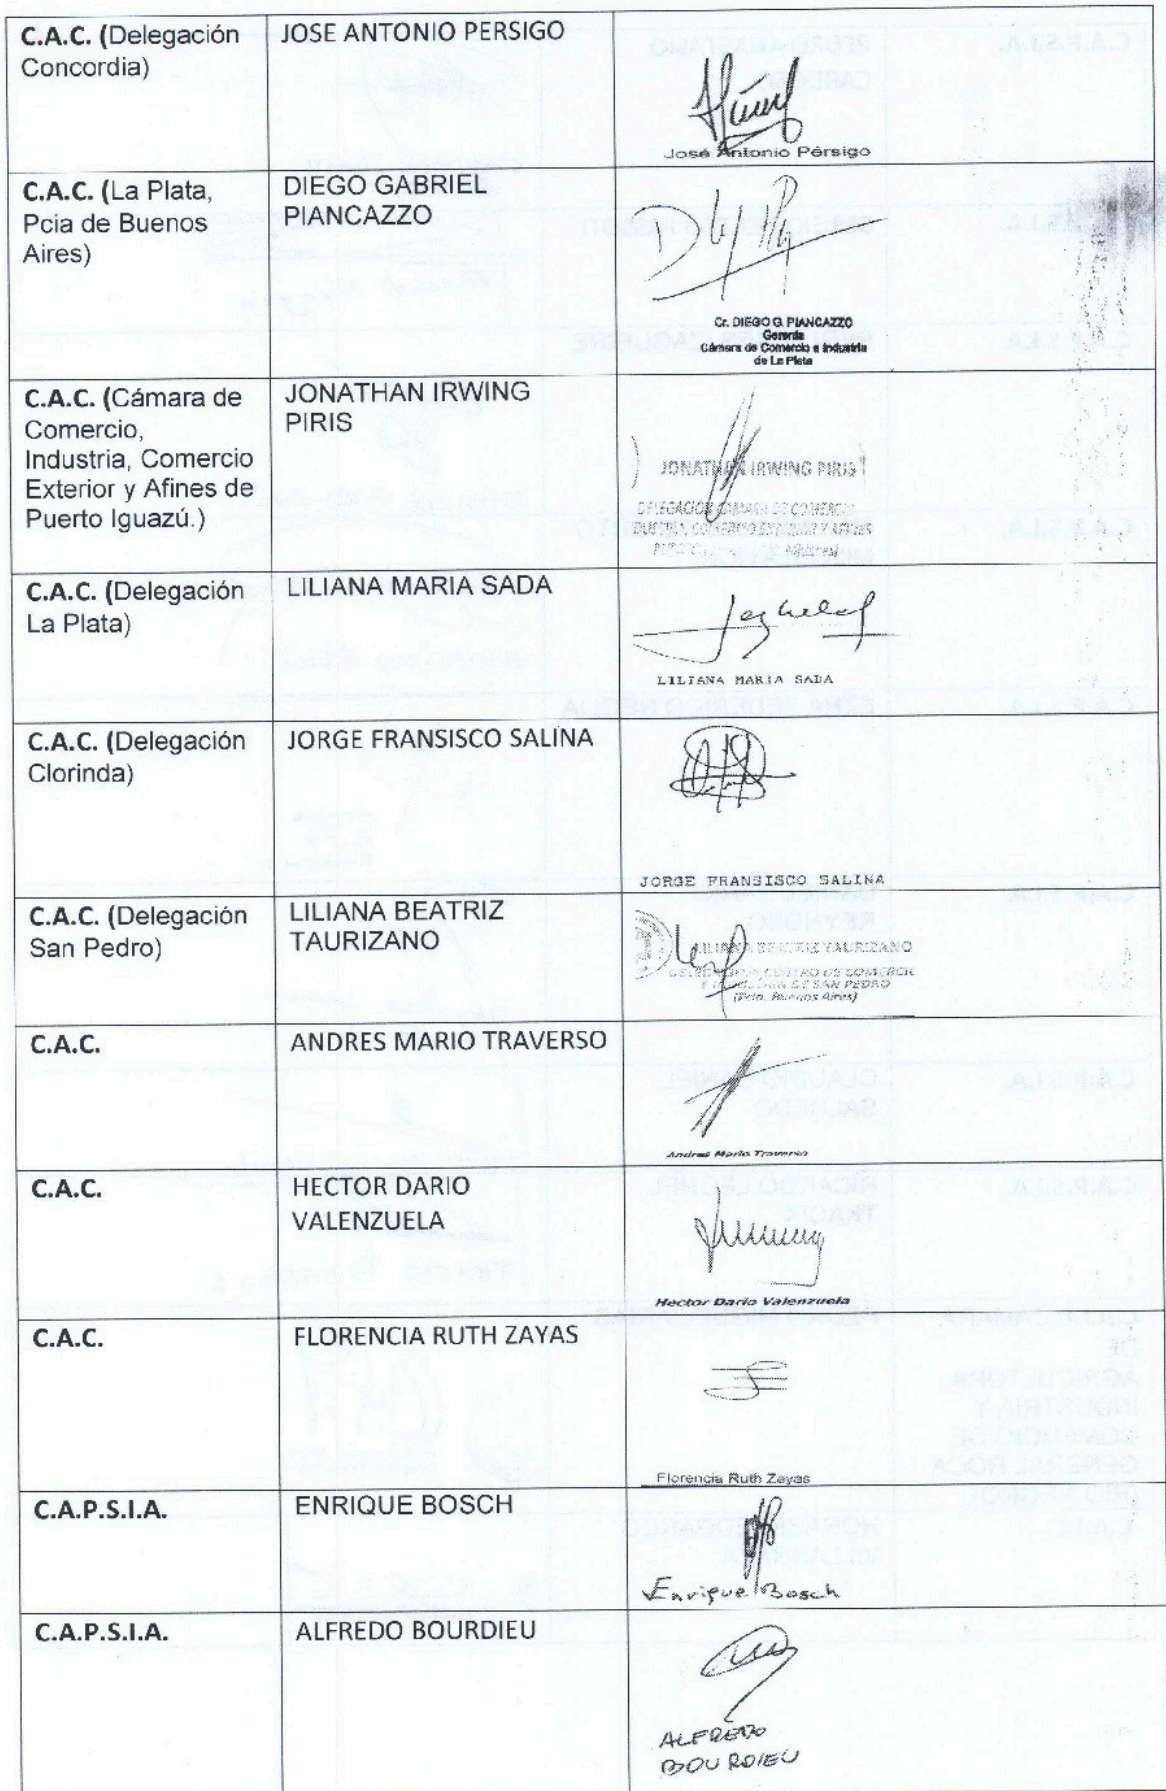 C.A.C. (Delegación
Concordia)
JOSE ANTONIO PERSIGO
José Antonio Pérsigo
C.A.C. (La Plata,
Pcia de Buenos
Aires)
DIEGO GABRIEL
PIANCAZZO
Cr. DIEGO G. PIANCAZZO
Gerente
Cámara de Comercio e Industria
de La Plata
C.A.C. (Cámara de
Comercio,
Industria, Comercio
Exterior y Afines de
Puerto Iguazú.)
JONATHAN IRWING
PIRIS
JONATHAN IRWING PIRIS
DELEGACIÓN CAMARA DE COMERCIO
COMERCIO EXTERIOR Y AFINES
C.A.C. (Delegación
La Plata)
LILIANA MARIA SADA
LILIANA MARIA SADA
C.A.C. (Delegación
Clorinda)
JORGE FRANSISCO SALINA
JORGE FRANSISCO SALINA
C.A.C. (Delegación
San Pedro)
LILIANA BEATRIZ
TAURIZANO
LILIANA BEATRIZ TAURIZANO
CENTRO DE COMERCIO
DE SAN PEDRO
(Pcia. Buenos Aires)
C.A.C.
ANDRES MARIO TRAVERSO
Andres Mario Traverso
C.A.C.
HECTOR DARIO
VALENZUELA
Hector Dario Valenzuela
C.A.C.
FLORENCIA RUTH ZAYAS
Florencia Ruth Zayas
C.A.P.S.I.A.
ENRIQUE BOSCH
Enrique Bosch
C.A.P.S.I.A.
ALFREDO BOURDIEU
ALFREDO
BOURDIEU